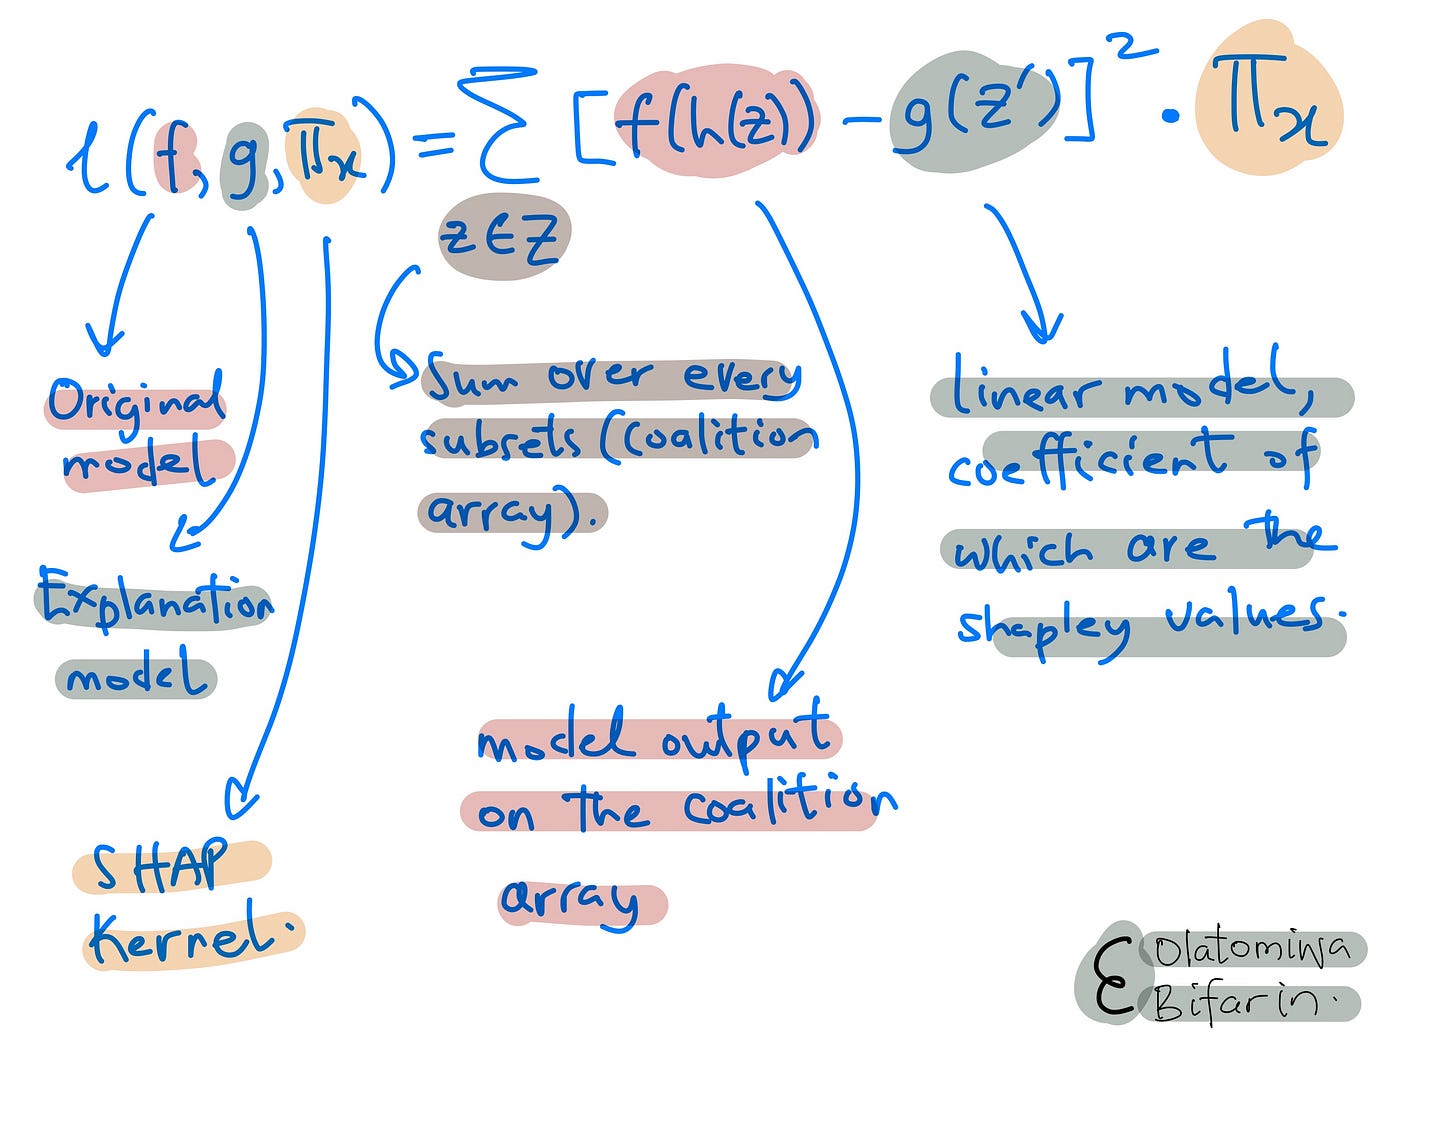 l(f, g, Πx) = Σ [f(h(z)) - g(z')]² · Πx
z∈Z
Original
model
Explanation
model
SHAP
Kernel.
Sum over every
subsets (coalition
array).
model output
on the coalition
array
linear model,
coefficient of
which are the
shapley values.
Ɛ Olatomiwa
Bifarin.